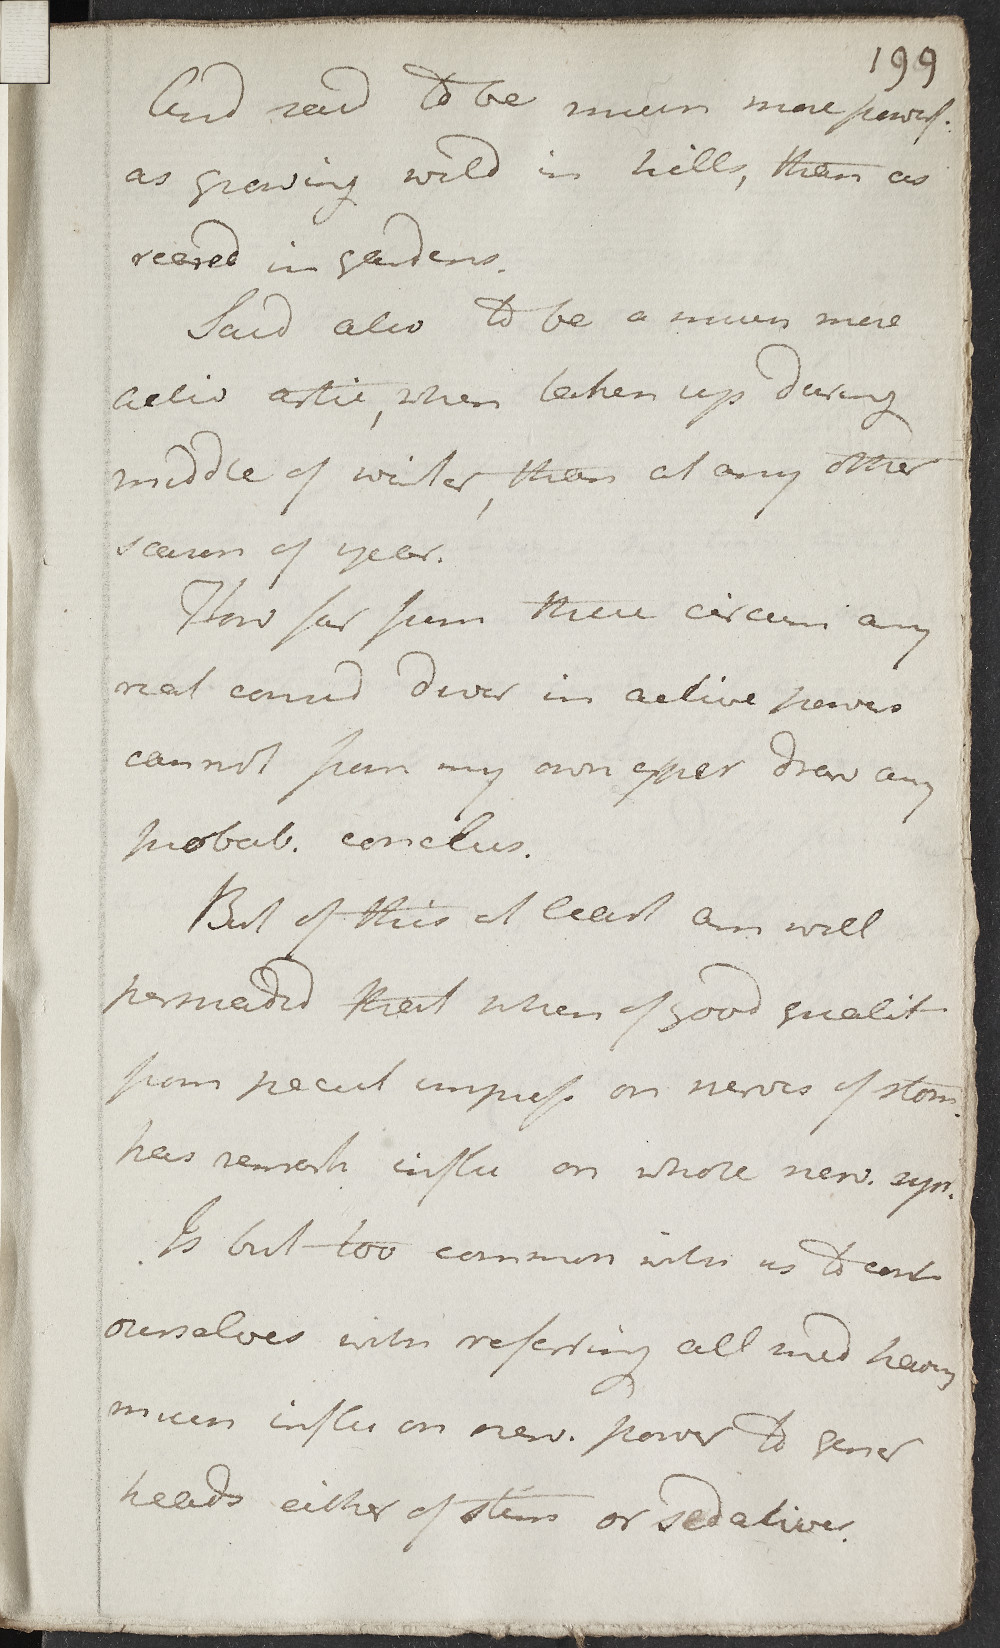 199
And said to be much more powerf.
as growing wild in hills, than as
reared in gardens.
Said also to be a much more
activ artic, when taken up during
middle of winter, than at any other
season of year.
How far from these circum any
real consid diver in active powers
cannot from my own exper draw any
probab. conclus.
But of this at least am well
persuaded that when of good qualit
from pecul impress on nerves of stom.
has remark influ on whole nerv. syst.
Is but too common with us to cont
ourselves with referring all med having
much influ on nerv. power to gener
heads either of stim or sedatives.